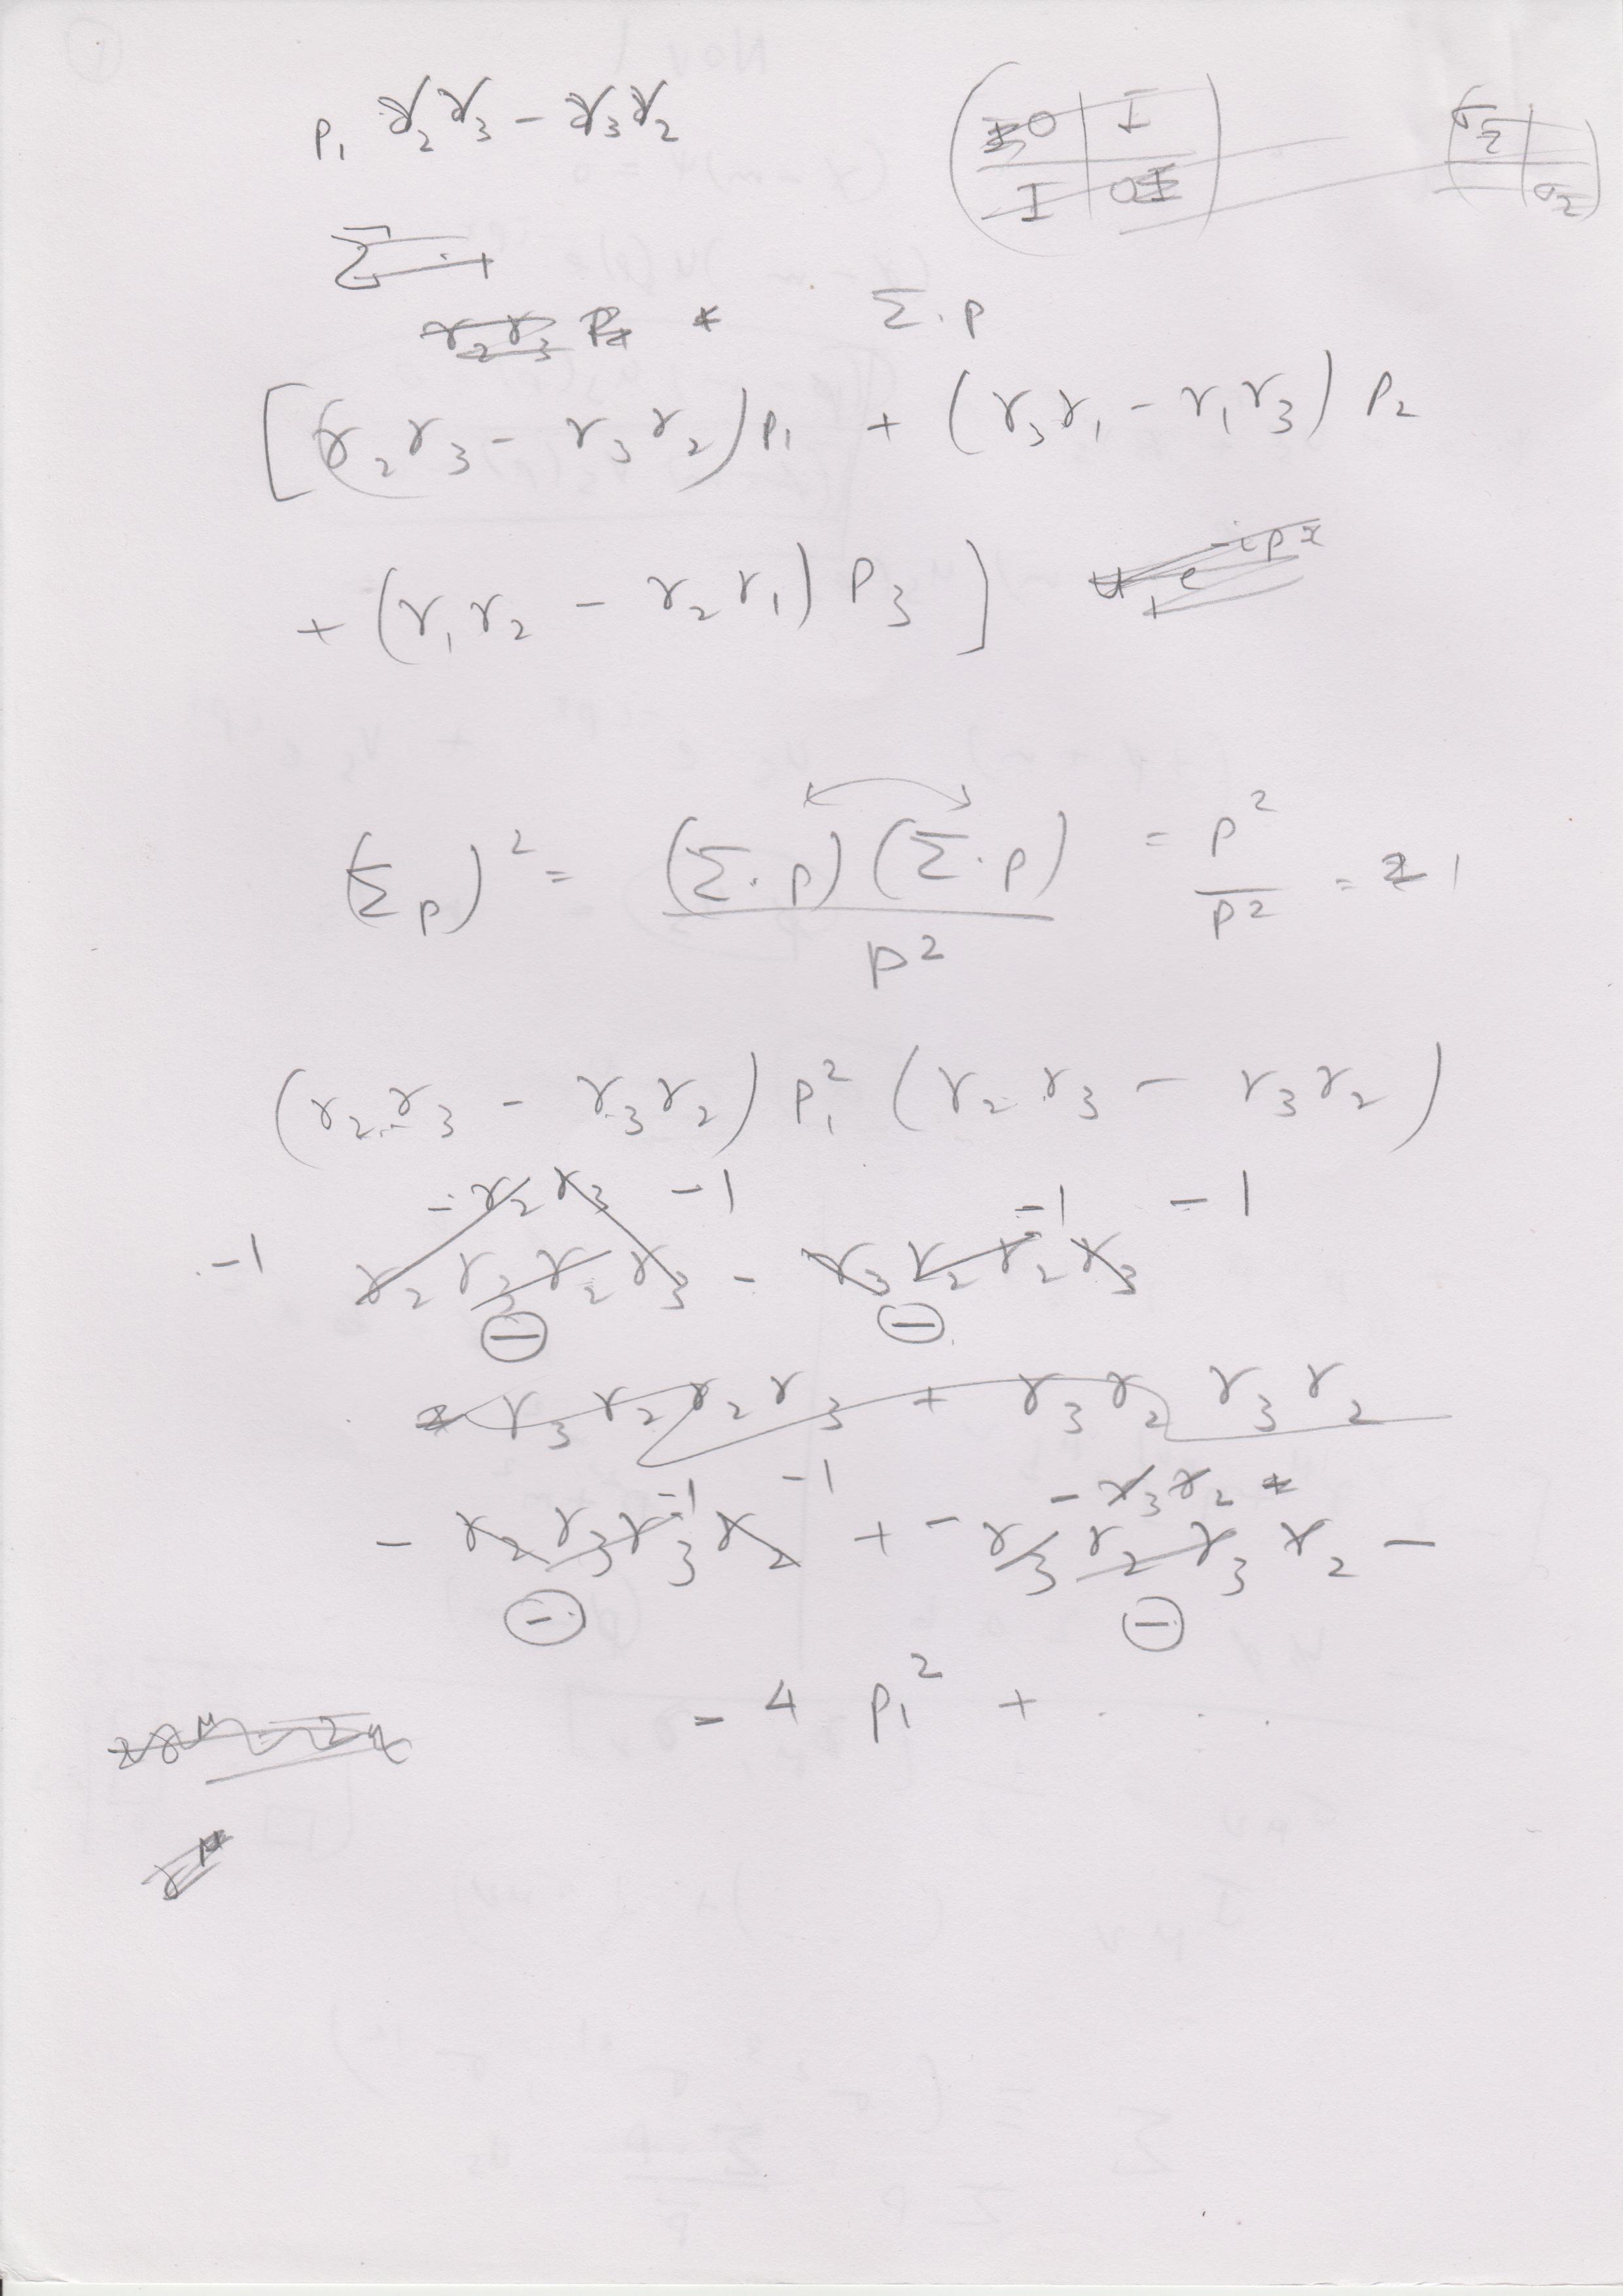 p₁ γ₂γ₃ − γ₃γ₂
0 I
I 0
σ₂
σ₂
Σ ·
γ₂γ₃ p
Σ · p
[(γ₂γ₃ − γ₃γ₂) p₁ + (γ₃γ₁ − γ₁γ₃) p₂
+ (γ₁γ₂ − γ₂γ₁) p₃ ]
u₊ e^{-ipx}
(Σp)² = (Σ·p)(Σ·p) / p² = p² / p² = 1
(γ₂γ₃ − γ₃γ₂) p₁² (γ₂γ₃ − γ₃γ₂)
− γ₂γ₃ −1 −1 −1
−1 γ₂γ₃γ₂γ₃ − γ₃γ₂γ₂γ₃
− −
γ₃γ₂γ₂γ₃ + γ₃γ₂ γ₃γ₂
−1 −1 − γ₃γ₂
− γ₂γ₃γ₃γ₂ + − γ₃γ₂γ₃γ₂ −
− −
− 4 p₁² + . . .
γ^μ